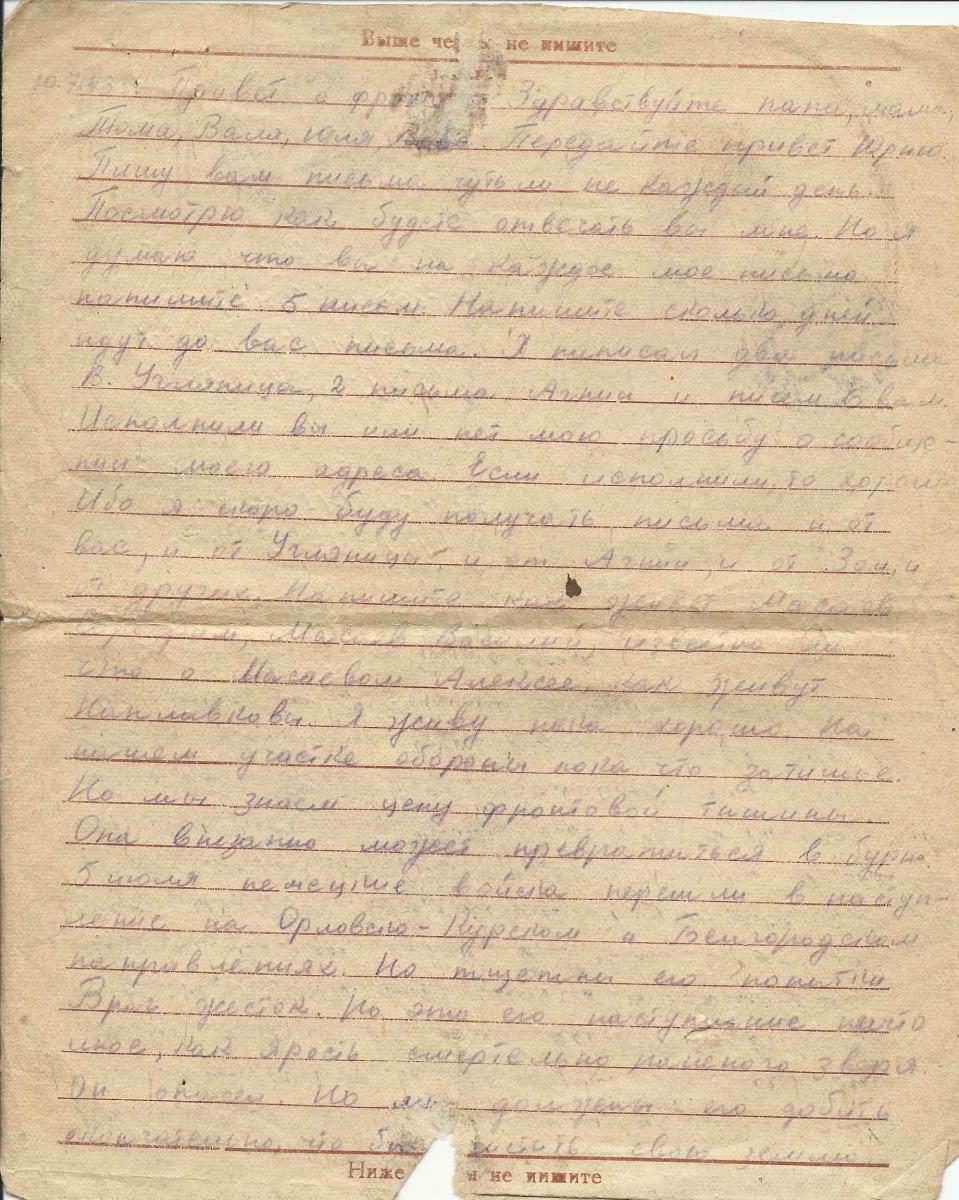 Выше че ы не пишите
10.7.43. Привет с фронта. Здравствуйте папа, мама,
Тома, Валя, Юля Вова. Передайте привет Юрию.
Пишу вам письма чуть ли не каждый день.
Посмотрю как будете отвечать вы мне. Но я
думаю что вы на каждое мое письмо
напишите 5 писем. Напишите сколько дней
идут до вас письма. Я написал два письма
В. Угляница, 2 письма Агнии и писем 6 вам.
Исполнили вы или нет мою просьбу о сообще-
нии моего адреса. Если исполнили, то хорошо
Ибо я скоро буду получать письма и от
вас, и от Угляницы и от Агнии, и от Зои, и
от других. Напишите как живет Масаев
Масаев Василий, известно ли
что о Масаевом Алексее, как живут
Наплавковы. Я живу пока хорошо. На
нашем участке обороны пока что затишье.
Но мы знаем цену фронтовой тишины.
Она внезапно может превратиться в бурю.
5 июля немецкие войска перешли в наступ-
ление на Орловско-Курском и Белгородском
направлениях. Но тщетны его попытки
Враг жесток. Но это его наступление ничто
иное, как ярость смертельно раненого зверя.
Он опасен. Но мы должны его добить
окончательно, что бы свою землю.
Ниже я не пишите